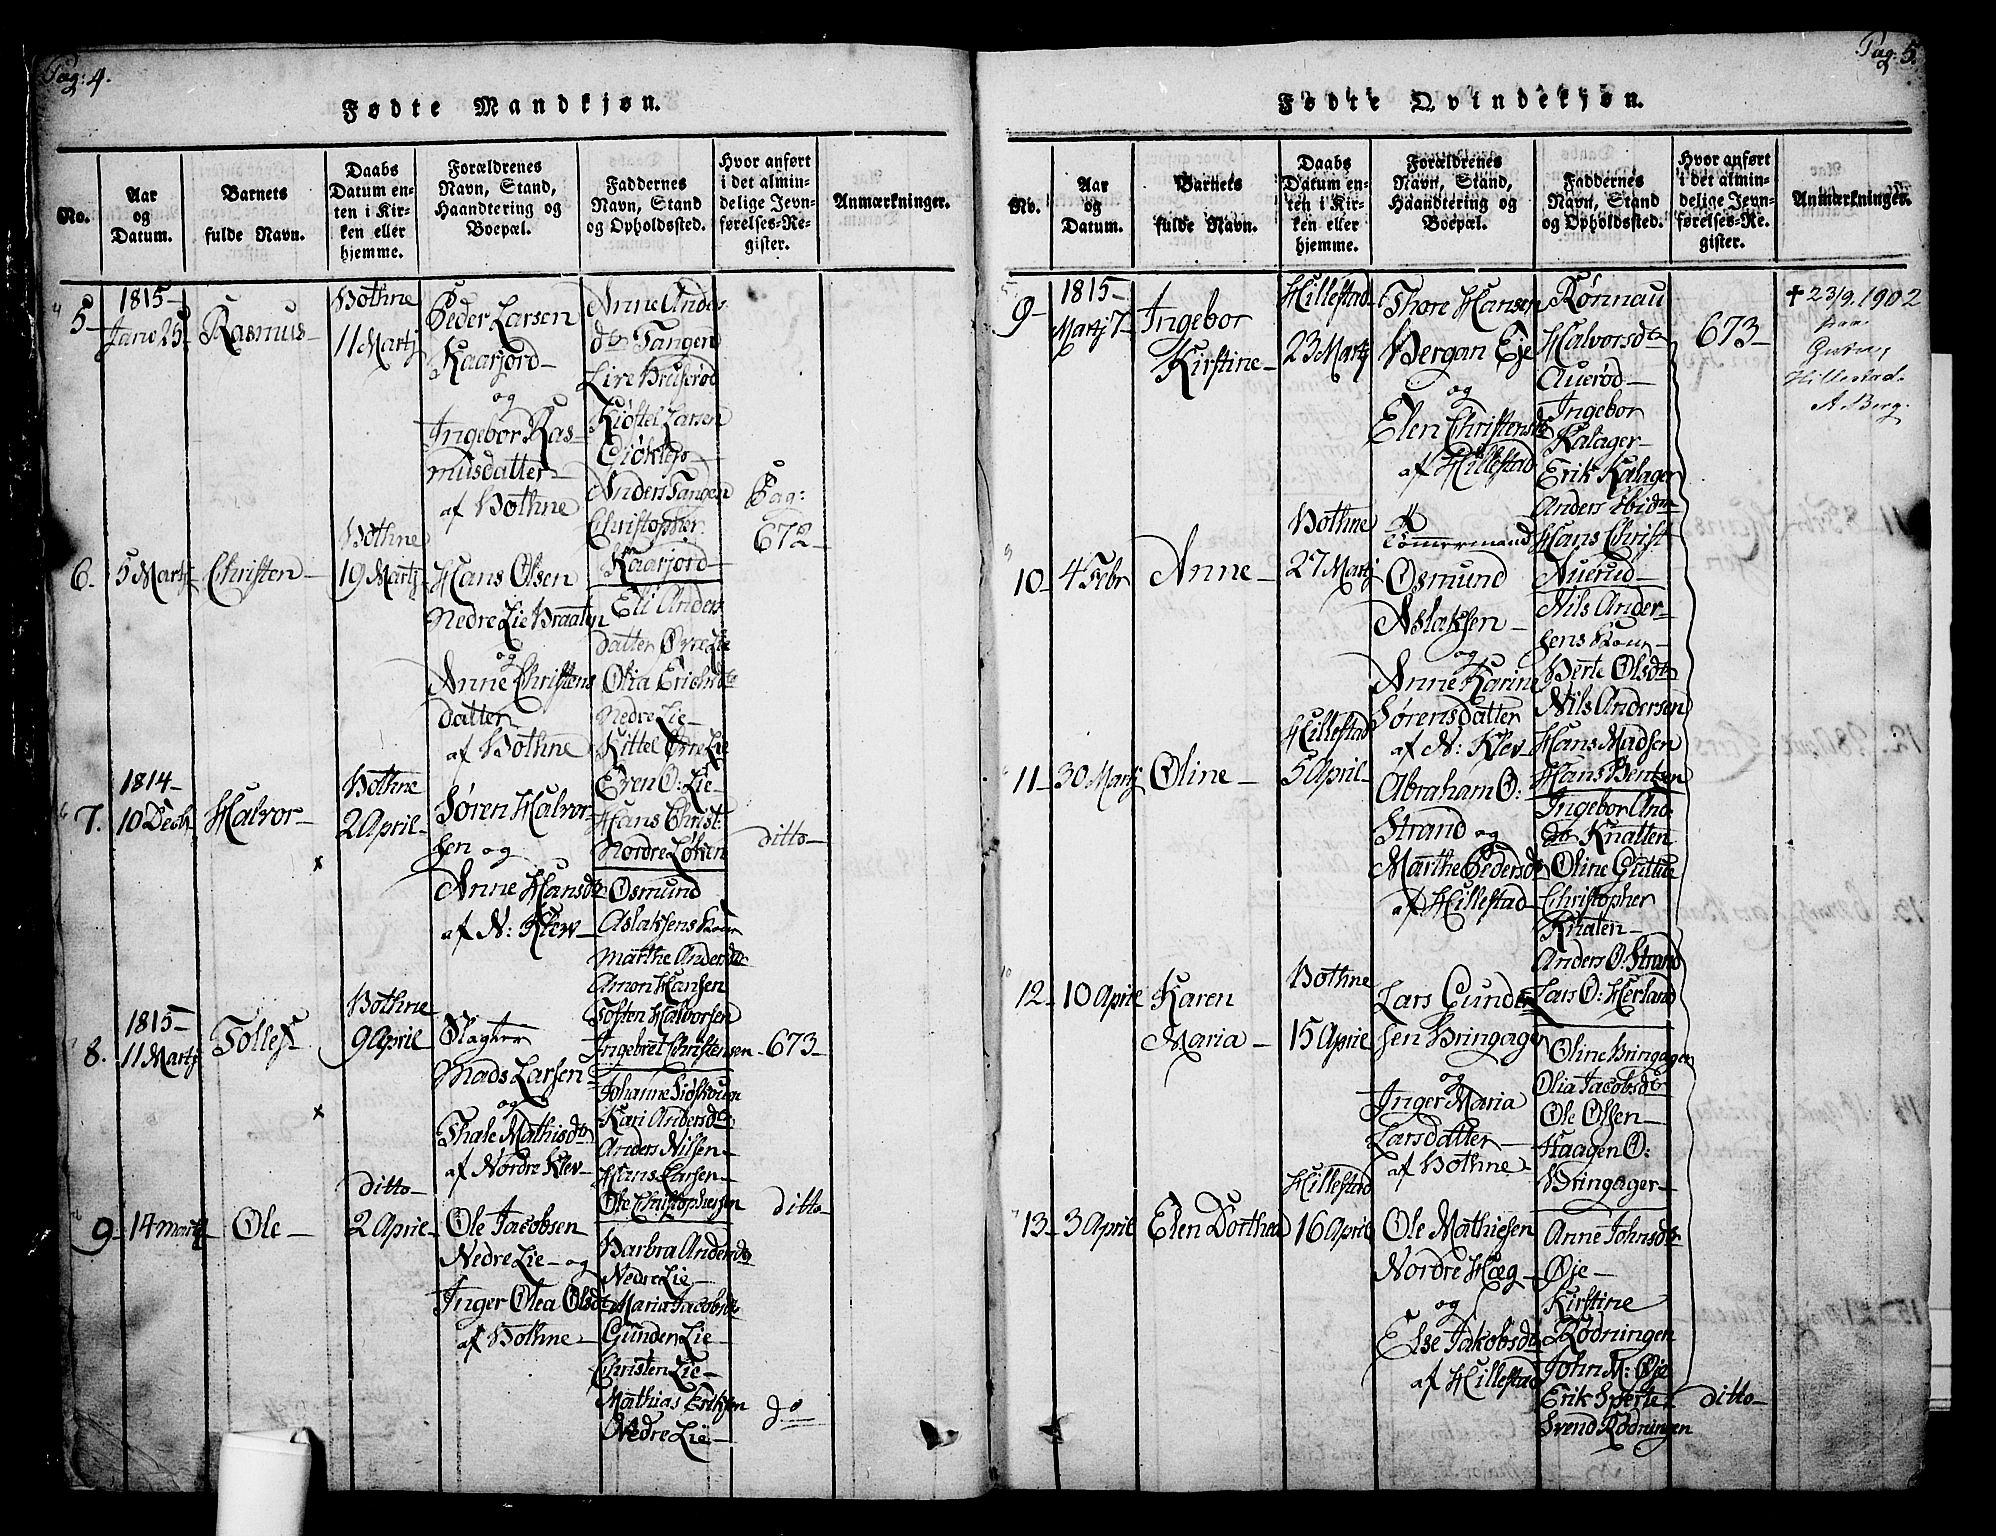 Pag: 4.
Fødte Mandkjøn.
No.
Aar
og
Datum.
Barnets
fulde Navn.
Daabs
Datum en-
ten i Kir-
ken eller
hjemme.
Forældrenes
Navn, Stand,
Haandtering og
Boepæl.
Faddernes
Navn, Stand
og Opholdssted.
Hvor anført
i det almin-
delige Jevn-
førelses-Re-
gister.
Anmærkninger.
5-
1815-
Rasmus-
Bothne
11 Martj
Peder Larsen
Kaarjord-
og
Ingebor Ras-
musdatter-
af Bothne
Anne Anders
dr Tangen
Lire Bruserød
Kiøstel Larsen
Anders Tangen
Christopher
Kaarjord-
Pag:
672-
6.
5 Martj
Christen-
Bothne
19 Martj
Hans Olsen
Nedre Lie Braaten
og
Anne Christens
datter
af Bothne
Eli Anders
datter Øvre Lie
Olia Erichsdtr
Nedre Lie-
Kittel Øvre Lie
Even O: Lie-
Hans Christ:
Nordre Løken
ditto-
7.
1814-
10 Decbr
Halvor-
Bothne
2 April-
Søren Halvor-
sen og
Anne Hansdtr
af N: Klev-
Osmund
Aslaksens Kone
Marthe Andersdtr
Amon Hansen
Tosten Halvorsen
Ingebret Christensen
673-
8.
1815-
11 Martj
Tollef
Bothne
9 April
Slagter
Mads Larsen
og
Thale Mathisdtr
af Nordre Klev-
Kari Andersdtr
Anders Nilsen-
Hans Larsen-
Ole Christophersen
ditto-
9-
14 martj
Ole-
ditto-
2 April-
Ole Jacobsen
Nedre Lie- og
Inger Olea Olsdtr
af Bothne-
Barbra Andersdtr
Nedre Lie-
Maria Jacobsdtr
Gunder Lie-
Christen Lie-
Mathias Eriksen
Nedre Lie-
do
Pag. 5.
Fødte Qvindekjøn.
No.
Aar
og
Datum.
Barnets
fulde Navn.
Daabs
Datum en-
ten i Kir-
ken eller
hjemme.
Forældrenes
Navn, Stand,
Haandtering og
Boepæl.
Faddernes
Navn, Stand
og Opholdssted.
Hvor anført
i det almin-
delige Jevn-
førelses-Re-
gister.
Anmærkninger.
9-
1815-
Martj 7-
Ingebor
Kirstine-
Hillestad
23 Martj
Thore Hansen
Bergan Eje
og
Elen Christensdtr
af Hillestad
Rønnau
Halvorsdtr
Auerød-
Ingebor
Kalager-
Erik Kalager
Anders Ibidm
Hans Christ
Auerud-
673-
✝ 23/9. 1902
paa
Hillestad.
A Berg.
10-
4 Febr
Anne-
Bothne
27 Martj
Tømmermand
Osmund
Aslaksen-
og
Anne Karine
Sørensdatter
af N: Klev-
Nils Ander-
sens Kone-
Berte Olsdtr
Nils Andersen
Hans Madsen
Hans Bentzen
11-
30 Martj
Oline-
Hillestad
5 April-
Abraham O:
Strand og
Marthe Pedersdtr
af Hillestad-
Ingebor And-
dtr Knatten
Oline Guttue
Christopher
Knaten-
Anders O: Strand
Lars O: Herland
12-
10 April
Karen
Maria-
Bothne
15 April
Lars Gunder-
sen Bringager
og
Inger Maria
Larsdatter-
af Bothne-
Oline Bringager
Olia Jacobsdtr
Ole Olsen-
Haagen O:
Bringager-
13-
3 April
Elen Dorthea
Hillestad
16 April
Ole Mathiesen
Nordre Hæg-
og
Else Jakobsdtr
af Hillestad
Anne Johnsdtr
Øje-
Kirstine
Rødningen
John M: Øje
Erik Sperte-
Svend Rødningen
ditto-